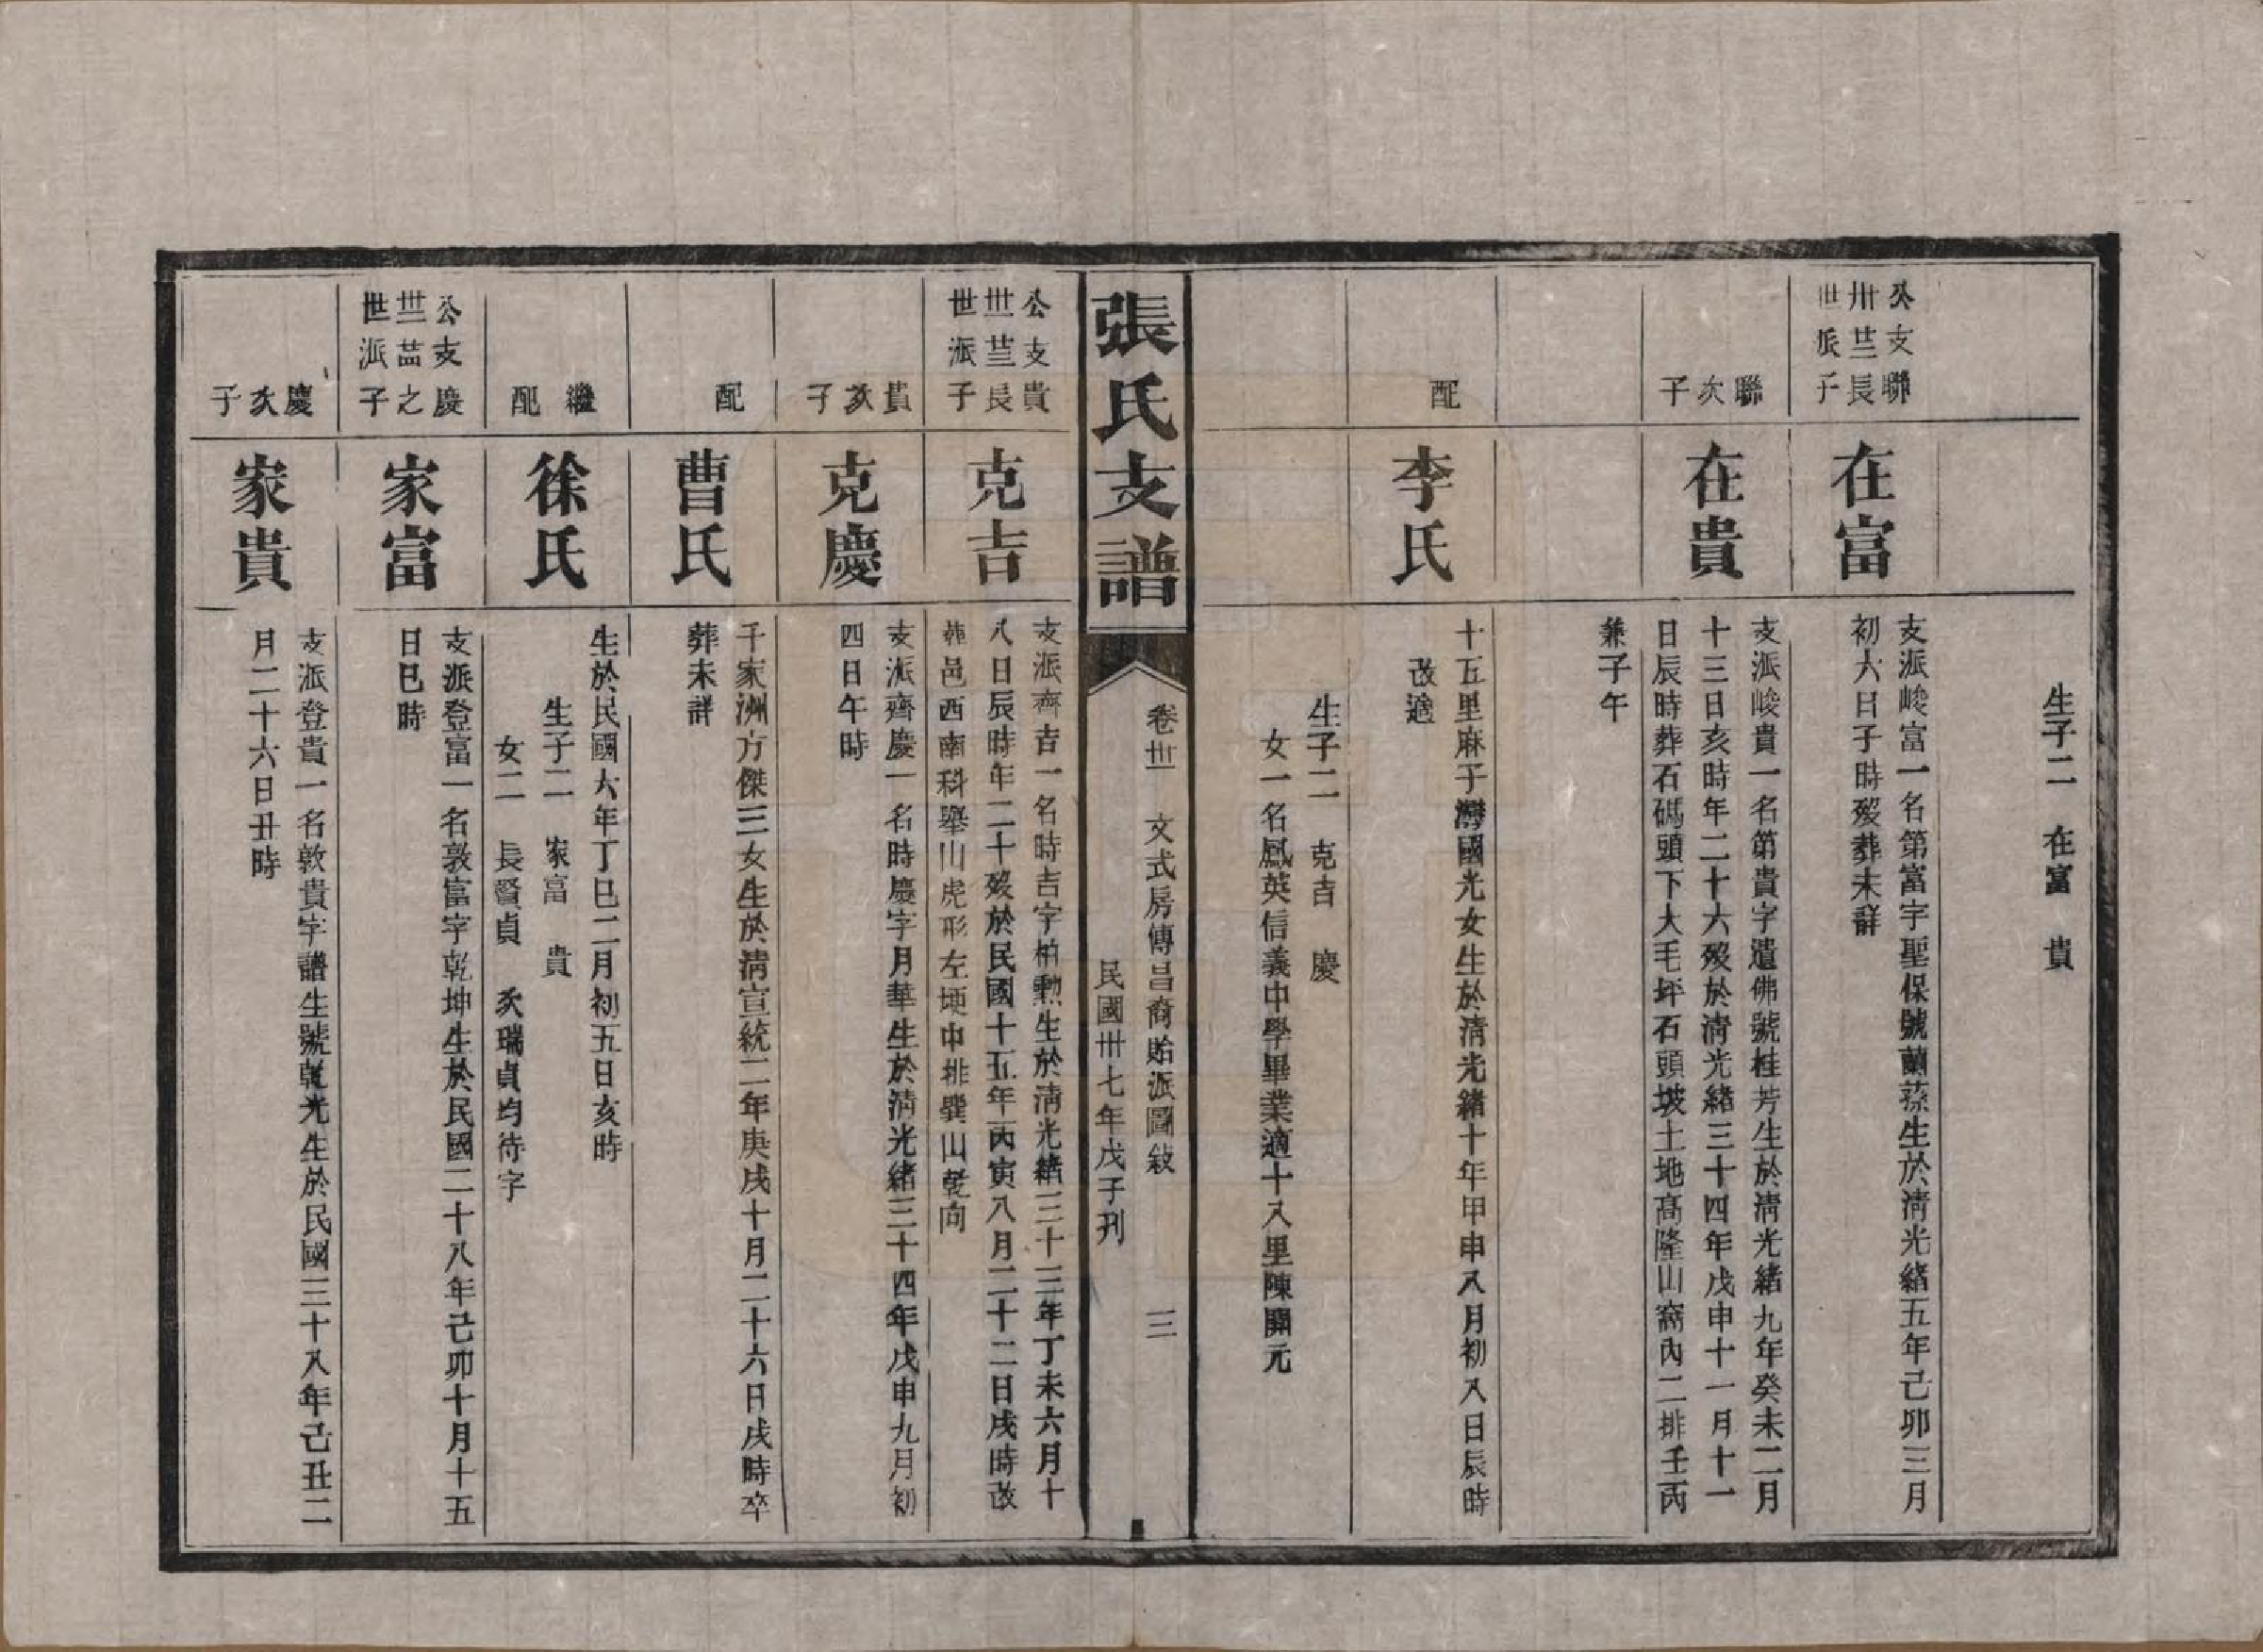 生子二 在富 貴
公支聯
卅芸長
世派子
在富
支派峻富一名第富字聖保號蘭蓀生於淸光緒五年己卯三月
初六日子時歿葬未詳
聯次子
在貴
支派峻貴一名第貴字遺佛號桂芳生於淸光緒九年癸未二月
十三日亥時年二十六歿於淸光緒三十四年戊申十一月十一
日辰時葬石碼頭下大毛坪石頭坡土地高隆山窩內二排壬丙
兼子午
配
李氏
十五里麻子灣國光女生於淸光緒十年甲申八月初八日辰時
改適
生子二 克吉 慶
女一名鳳英信義中學畢業適十八里陳開元
張氏支譜
卷卅 文式房傳昌裔貽派圖敍 三
民國卅七年戊子刋
公支貴
世芸長
世派子
克吉
支派齊吉一名時吉字柏勲生於淸光緒三十三年丁未六月十
八日辰時年二十歿於民國十五年丙寅八月二十二日戌時改
葬邑西南科舉山虎形左埂中排巽山乾向
貴次子
克慶
支派齊慶一名時慶字月華生於淸光緒三十四年戊申九月初
四日午時
配
曹氏
千家洲方傑三女生於淸宣統二年庚戌十月二十六日戌時卒
葬未詳
繼配
徐氏
生於民國六年丁巳二月初五日亥時
生子二 家富 貴
女二 長賢貞 次瑞貞均待字
公支慶
之
世派子
家富
支派登富一名敦富字乾坤生於民國二十八年己卯十月十五
日巳時
慶次子
家貴
支派登貴一名敦貴字譜生號乾光生於民國三十八年己丑二
月二十六日丑時